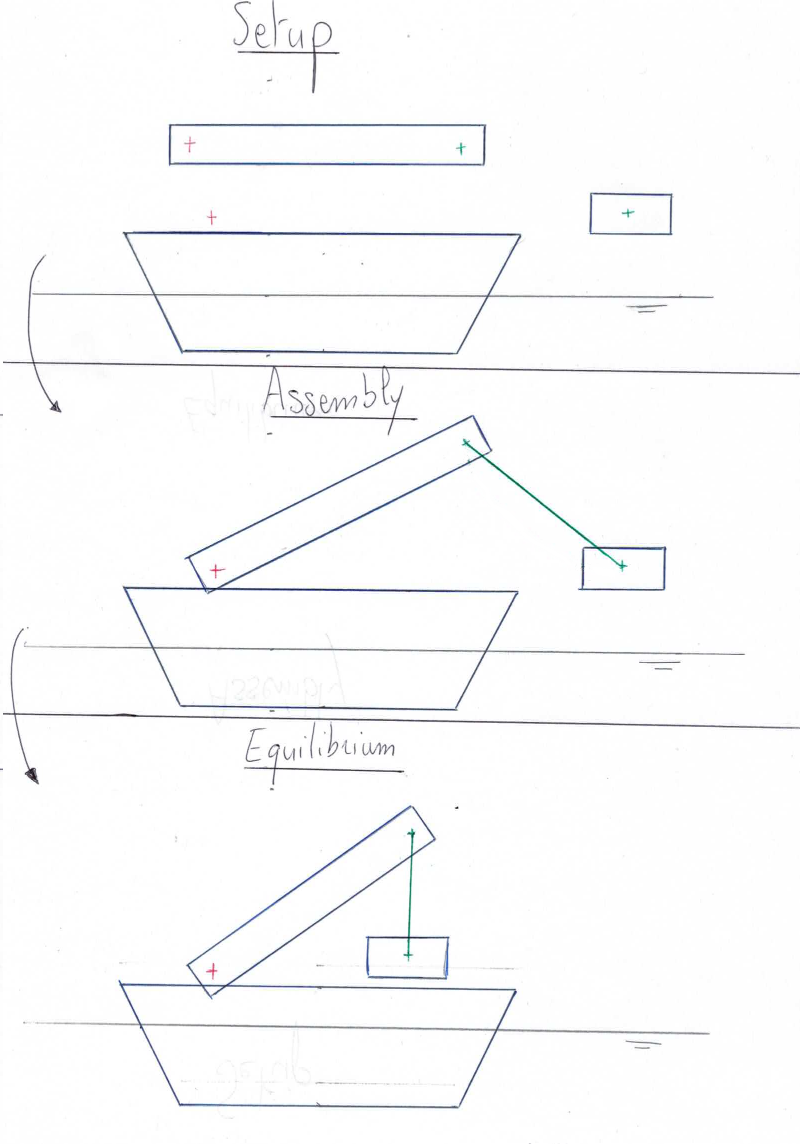 Setup
Assembly
Equilibrium